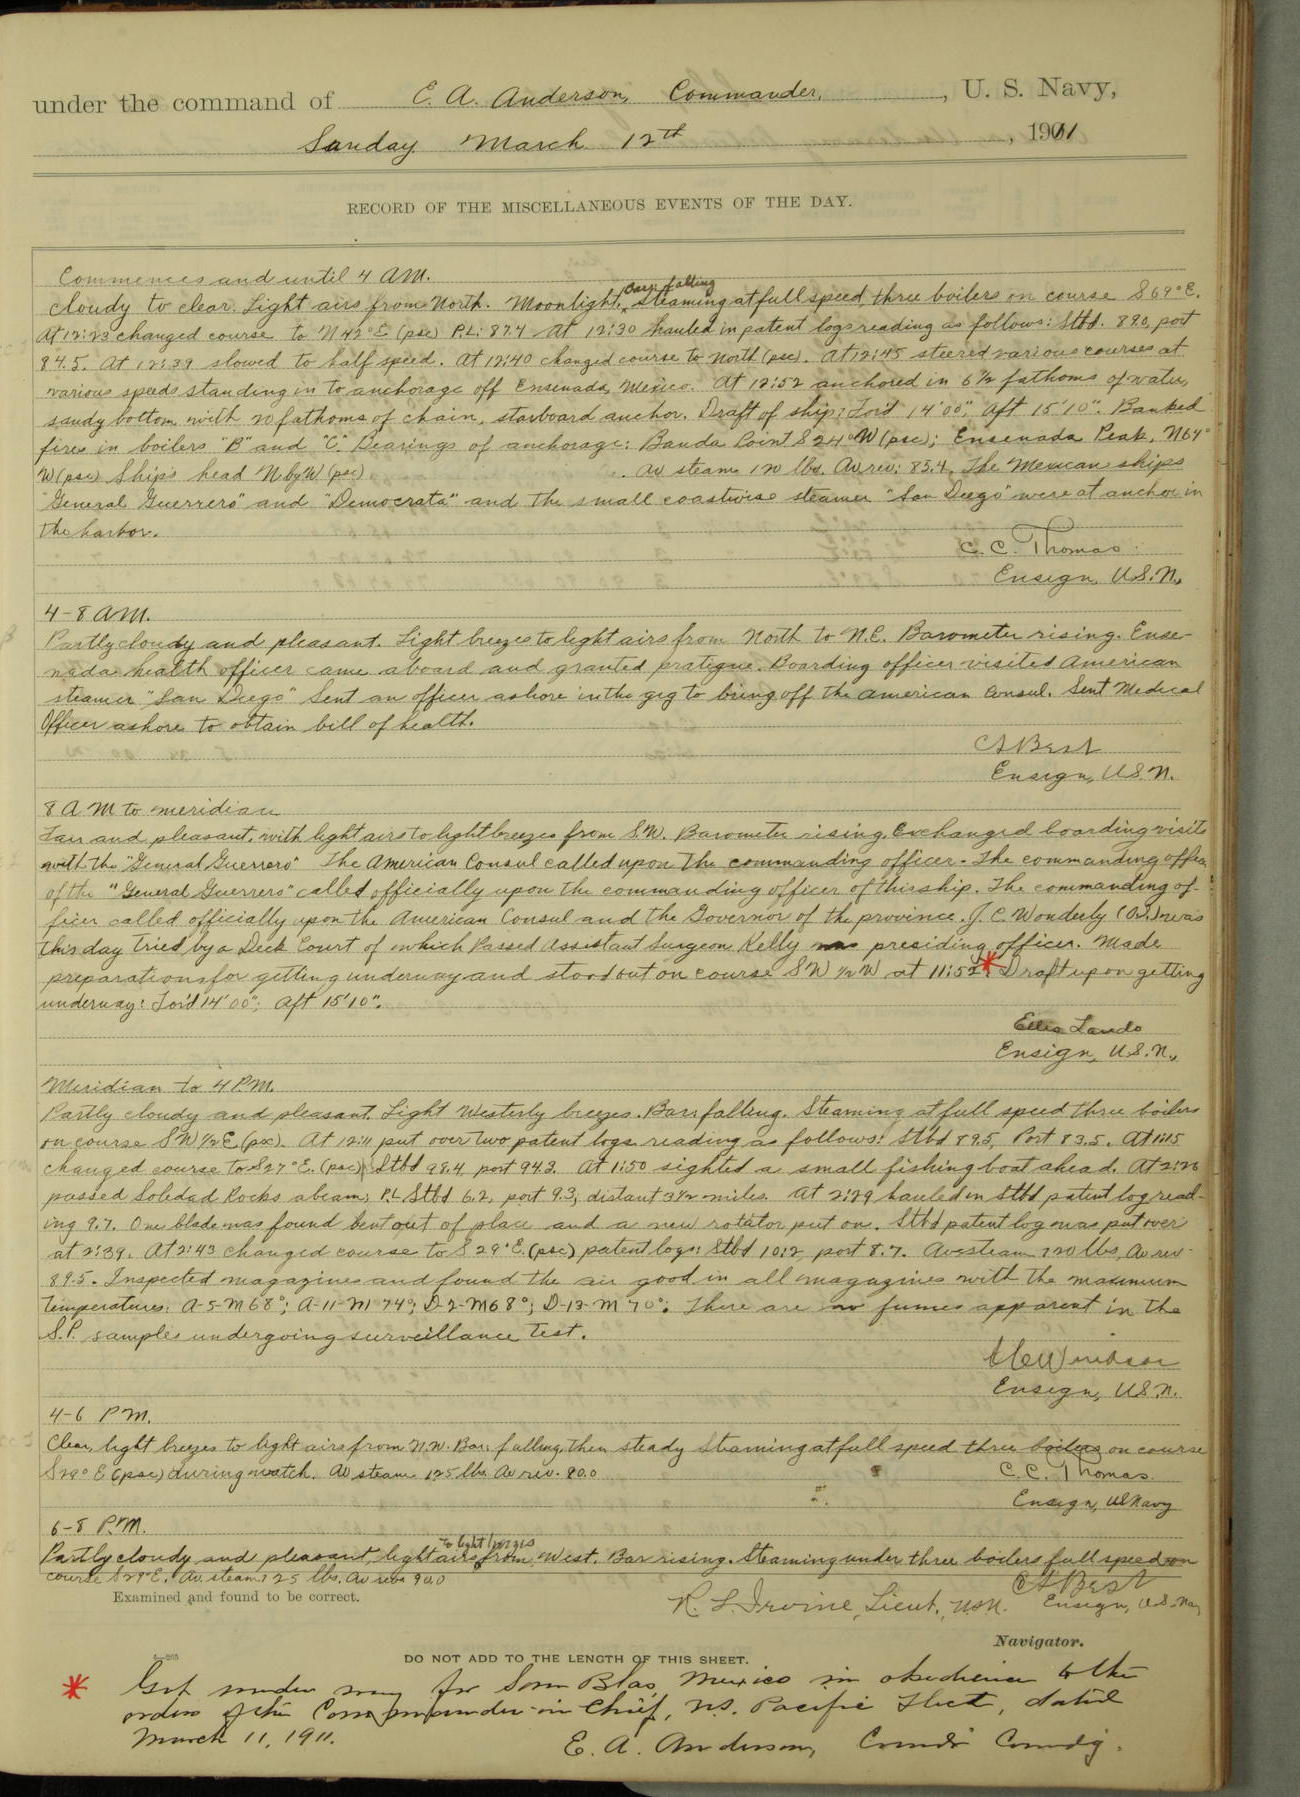 under the command of E. A. Anderson, Commander, , U. S. Navy,
Sunday March 12th , 1911
RECORD OF THE MISCELLANEOUS EVENTS OF THE DAY.
Commences and until 4 AM.
Cloudy to clear. Light airs from North. Moonlight, Baro falling steaming at full speed three boilers on course S69°E.
At 12:23 changed course to N42°E (psc) P.L: 87.4 At 12:30 hauled in patent logs reading as follows: Stbd. 89.0, port
84.5. At 12:39 slowed to half speed. At 12:40 changed course to North (psc). At 12:45 steered various courses at
various speeds standing in to anchorage off Ensenada, Mexico. At 12:52 anchored in 6½ fathoms of water,
sandy bottom with 20 fathoms of chain, starboard anchor. Draft of ship: For'd 14'00"; Aft 15'10". Banked
fires in boilers "B" and "C". Bearings of anchorage: Banda Point S24°W (psc); Ensenada Peak, N64°
W (psc) Ship's head N by W (psc) . Av steam 120 lbs. Av rev: 85.4. The Mexican ships
"General Guerrero" and "Democrata" and the small coastwise steamer "San Diego" were at anchor in
the harbor.
C. C. Thomas
Ensign, U.S.N.
4-8 AM.
Partly cloudy and pleasant. Light breezes to light airs from North to N.E. Barometer rising. Ense-
nada health officer came aboard and granted pratique. Boarding officer visited American
steamer "San Diego" Sent an officer ashore in the gig to bring off the American Consul. Sent Medical
Officer ashore to obtain bill of health.
Best
Ensign, U.S.N.
8 AM to meridian
Fair and pleasant, with light airs to light breezes from S.W. Barometer rising. Exchanged boarding visits
with the "General Guerrero" The American Consul called upon the commanding officer. The commanding officer
of the "General Guerrero" called officially upon the commanding officer of this ship. The commanding of-
ficer called officially upon the American Consul and the Governor of the province. J. C. Wonderly was
this day tried by a Deck Court of which Passed Assistant Surgeon Kelly was presiding officer. Made
preparations for getting underway and stood out on course SW ½ W at 11:52.* Draft upon getting
underway: For'd 14'00"; Aft 15'10".
Ellis Lando
Ensign, U.S.N.
Meridian to 4 P.M.
Partly cloudy and pleasant. Light Westerly breezes. Baro falling. Steaming at full speed three boilers
on course SW ½ E (psc). At 12:11 put over two patent logs reading as follows: Stbd 89.5, Port 83.5. At 1:15
changed course to S27°E. (psc) Stbd 98.4 port 94.3. At 1:50 sighted a small fishing boat ahead. At 2:26
passed Soledad Rocks abeam; P.L. Stbd 6.2, port 9.3, distant 3½ miles. At 2:29 hauled in Stbd patent log read-
ing 9.7. One blade was found bent out of place and a new rotator put on. Stbd patent log was put over
at 2:39. At 2:43 changed course to S29°E. (psc) patent logs: Stbd 10.2, port 8.7. Av steam 120 lbs, Av rev
89.5. Inspected magazines and found the air good in all magazines with the maximum
temperatures: A-5-M 68°; A-11-M 74°; D-2-M 68°; D-13-M 70°. There are no fumes apparent in the
S.P. samples undergoing surveillance test.
Ensign, U.S.N.
4-6 P.M.
Clear, light breezes to light airs from N.W. Bar: falling, then steady Steaming at full speed three boilers on course
S29°E (psc) during watch. Av steam 125 lbs. Av rev. 90.0
C. C. Thomas
Ensign, US Navy
6-8 P.M.
Partly cloudy and pleasant, light airs to light breezes from West. Bar rising. Steaming under three boilers full speed on
course S29°E. Av. steam 125 lbs. Av revs 90.0
Best
Ensign, U.S. Navy
Examined and found to be correct.
R. L. Irvine, Lieut., U.S.N.
Navigator.
DO NOT ADD TO THE LENGTH OF THIS SHEET.
* Got under way for San Blas, Mexico in obedience to the
orders of the Commander-in-Chief, U.S. Pacific Fleet, dated
March 11, 1911.
E. A. Anderson, Comdr Comdg.